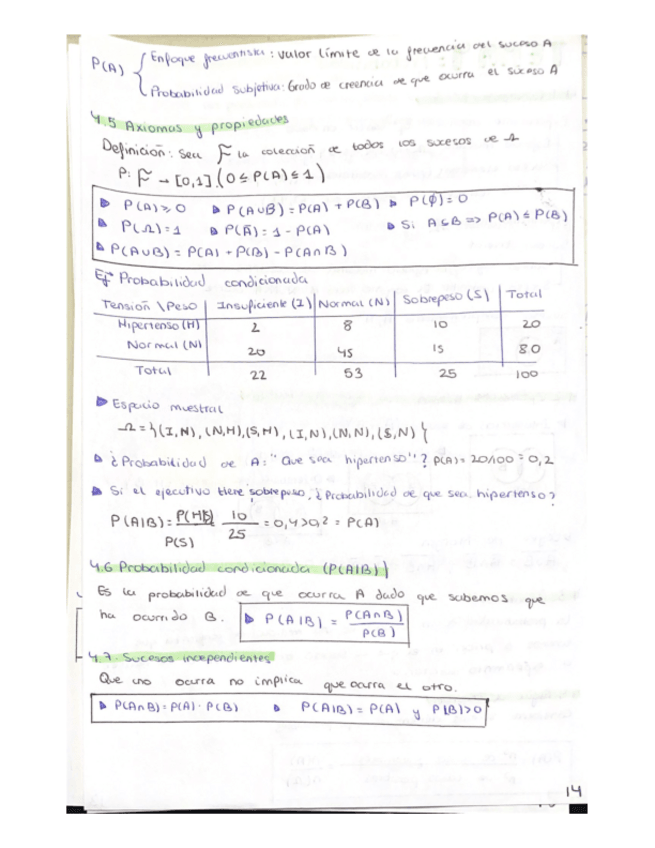 P(A) { Enfoque frecuentista: valor límite de la frecuencia del suceso A
Probabilidad subjetiva: Grado de creencia de que ocurra el suceso A
4.5 Axiomas y propiedades
Definición: Sea F la colección de todos los sucesos de Ω
P: F → [0,1] (0 ≤ P(A) ≤ 1)
P(A) ≥ 0 P(A∪B) = P(A) + P(B) P(∅) = 0
P(Ω) = 1 P(Ā) = 1 - P(A) Si A⊆B => P(A) ≤ P(B)
P(A∪B) = P(A) + P(B) - P(A∩B)
Ej- Probabilidad condicionada
Tensión \ Peso Insuficiente (I) Normal (N) Sobrepeso (S) Total
Hipertenso (H) 2 8 10 20
Normal (N) 20 45 15 80
Total 22 53 25 100
Espacio muestral
Ω = {(I,N), (N,H), (S,H), (I,N), (N,N), (S,N)}
¿Probabilidad de A: "Que sea hipertenso"? P(A) = 20/100 = 0,2
Si el ejecutivo tiene sobrepeso, ¿Probabilidad de que sea hipertenso?
P(A|B) = P(H|S) 10/25 = 0,4 > 0,2 = P(A)
P(S)
4.6 Probabilidad condicionada (P(A|B))
Es la probabilidad de que ocurra A dado que sabemos que
ha ocurrido B. P(A|B) = P(A∩B)/P(B)
4.7. Sucesos independientes
Que uno ocurra no implica que ocurra el otro.
P(A∩B) = P(A) · P(B) P(A|B) = P(A) y P(B) > 0
14